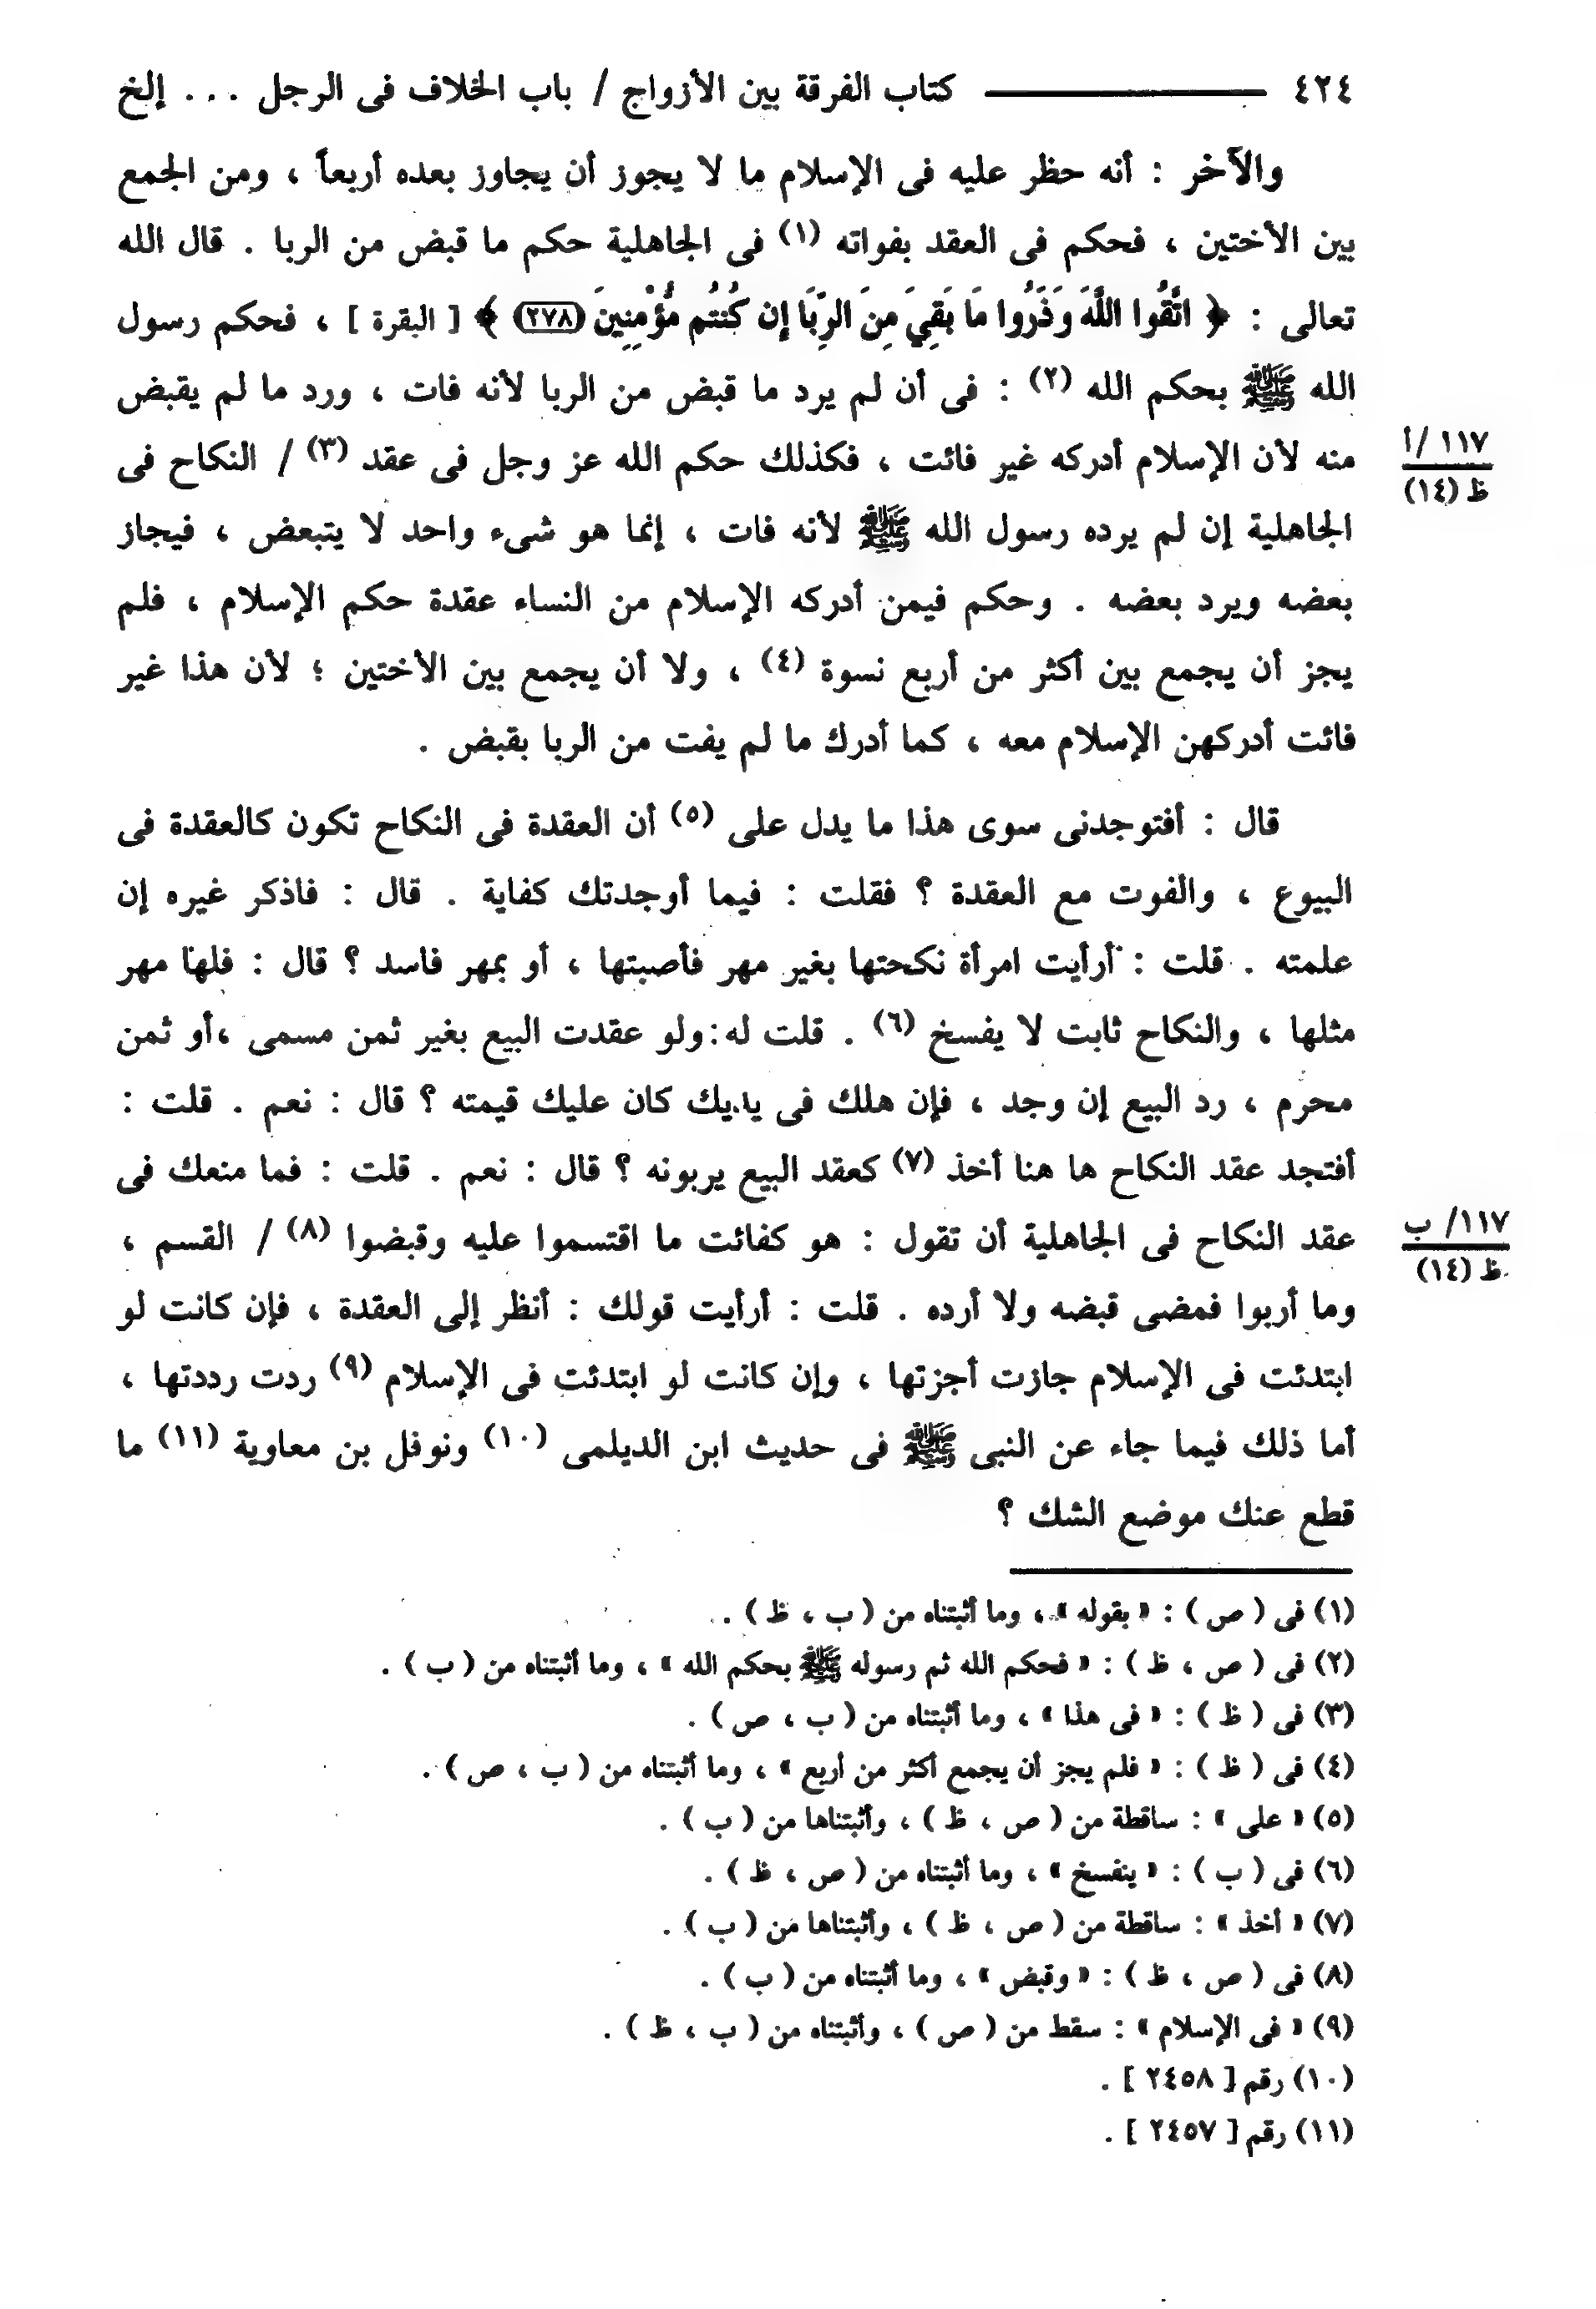 ٤٢٤ ــــــ كتاب الفرقة بين الأزواج / باب الخلاف فى الرجل . . . إلخ
والآخر : أنه حظر عليه فى الإسلام ما لا يجوز أن يجاوز بعده أربعاً ، ومن الجمع
بين الأختين ، فحكم فى العقد بفواته (١) فى الجاهلية حكم ما قبض من الربا . قال الله
تعالى : ﴿ اتَّقُوا اللَّهَ وَذَرُوا مَا بَقِيَ مِنَ الرِّبَا إِن كُنتُم مُّؤْمِنِينَ (٢٧٨) ﴾ [ البقرة ] ، فحكم رسول
الله ﷺ بحكم الله (٢) : فى أن لم يرد ما قبض من الربا لأنه فات ، ورد ما لم يقبض
منه لأن الإسلام أدركه غير فائت ، فكذلك حكم الله عز وجل فى عقد (٣) / النكاح فى
١١٧ /أ
ظ (١٤)
الجاهلية إن لم يرده رسول الله ﷺ لأنه فات ، إنما هو شىء واحد لا يتبعض ، فيجاز
بعضه ويرد بعضه . وحكم فيمن أدركه الإسلام من النساء عقدة حكم الإسلام ، فلم
يجز أن يجمع بين أكثر من أربع نسوة (٤) ، ولا أن يجمع بين الأختين ؛ لأن هذا غير
فائت أدركهن الإسلام معه ، كما أدرك ما لم يفت من الربا بقبض .
قال : أفتوجدنى سوى هذا ما يدل على (٥) أن العقدة فى النكاح تكون كالعقدة فى
البيوع ، والفوت مع العقدة ؟ فقلت : فيما أوجدتك كفاية . قال : فاذكر غيره إن
علمته . قلت : أرأيت امرأة نكحتها بغير مهر فأصبتها ، أو بمهر فاسد ؟ قال : فلها مهر
مثلها ، والنكاح ثابت لا يفسخ (٦) . قلت له : ولو عقدت البيع بغير ثمن مسمى ،أو ثمن
محرم ، رد البيع إن وجد ، فإن هلك فى يديك كان عليك قيمته ؟ قال : نعم . قلت :
أفتجد عقد النكاح ها هنا أخذ (٧) كعقد البيع يربونه ؟ قال : نعم . قلت : فما منعك فى
عقد النكاح فى الجاهلية أن تقول : هو كفائت ما اقتسموا عليه وقبضوا (٨) / القسم ،
١١٧/ ب
ظ (١٤)
وما أربوا فمضى قبضه ولا أرده . قلت : أرأيت قولك : أنظر إلى العقدة ، فإن كانت لو
ابتدئت فى الإسلام جازت أجزتها ، وإن كانت لو ابتدئت فى الإسلام (٩) ردت رددتها ،
أما ذلك فيما جاء عن النبى ﷺ فى حديث ابن الديلمى (١٠) ونوفل بن معاوية (١١) ما
قطع عنك موضع الشك ؟
(١) فى ( ص ) : « بقوله » ، وما أثبتناه من ( ب ، ظ ) .
(٢) فى ( ص ، ظ ) : « فحكم الله ثم رسوله ﷺ بحكم الله » ، وما أثبتناه من ( ب ) .
(٣) فى ( ظ ) : « فى هذا » ، وما أثبتناه من ( ب ، ص ) .
(٤) فى ( ظ ) : « فلم يجز أن يجمع أكثر من أربع » ، وما أثبتناه من ( ب ، ص ) .
(٥) « على » : ساقطة من ( ص ، ظ ) ، وأثبتناها من ( ب ) .
(٦) فى ( ب ) : « ينفسخ » ، وما أثبتناه من ( ص ، ظ ) .
(٧) « أخذ » : ساقطة من ( ص ، ظ ) ، وأثبتناها من ( ب ) .
(٨) فى ( ص ، ظ ) : « وقبض » ، وما أثبتناه من ( ب ) .
(٩) « فى الإسلام » : سقط من ( ص ) ، وأثبتناه من ( ب ، ظ ) .
(١٠) رقم [ ٢٤٥٨ ] .
(١١) رقم [ ٢٤٥٧ ] .